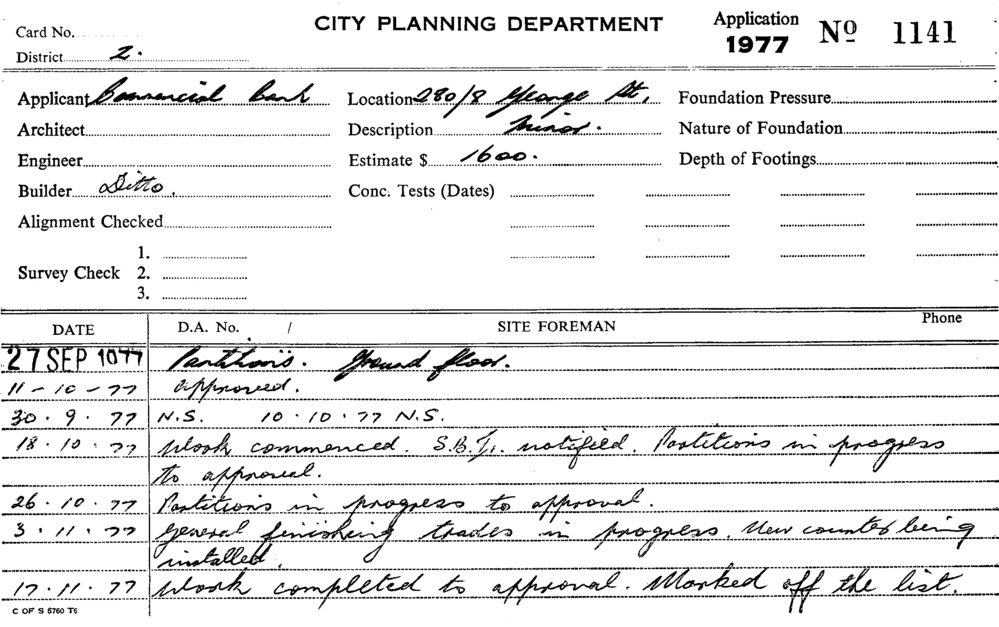 Card No.
CITY PLANNING DEPARTMENT
Application 1977
Nº 1141
District 2.
Applicant Commercial Bank
Location 280/8 George St,
Foundation Pressure
Architect
Description Minor.
Nature of Foundation
Engineer
Estimate $ 1600.
Depth of Footings
Builder Ditto.
Conc. Tests (Dates)
Alignment Checked
Survey Check
1.
2.
3.
DATE D.A. No. / SITE FOREMAN Phone
27 SEP 1977 Partitions. Ground floor.
11-10-77 Approved.
30.9.77 N.S. 10.10.77 N.S.
18.10.77 Work commenced. notified. Partitions in progress
to approval.
26.10.77 Partitions in progress to approval.
3.11.77 General finishing trades in progress. New counter being
installed.
17.11.77 Work completed to approval. Marked off the list.
C OF S 5760 T6